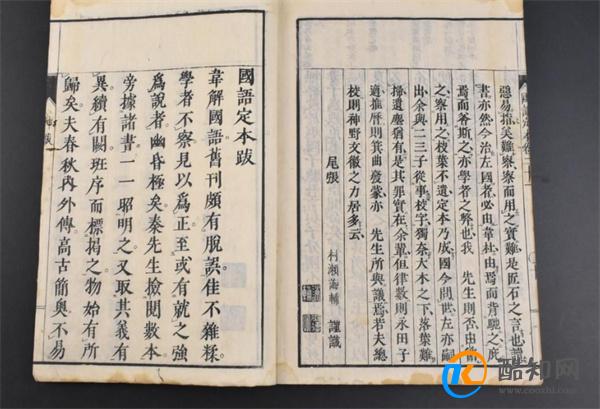 惡易指美難察察而用之實難是匠石之言也讀
書亦然今治左國者必由韋杜由焉而背馳之
焉而斯之亦學者之弊也我 先生則否由
之察用之枝葉不遺定本乃成國今問世左亦嗣
出余與二三子從事校字獨奈大木之下落葉難
掃遺塵猶有是其罪實在余輩但律數則永田子
適推曆則箕曲發蒙亦 先生所與議焉若夫總
校則神野文徽之力居多云
尾張
村瀨海輔 謹識
國語定本跋
韋解國語舊刊頗有脫誤佳不雜糅
學者不察見以爲正至或有就之強
爲說者幽昏極矣秦先生檢閱數本
旁據諸書一一昭明之又取其義有
異續有關班序而標揭之物始有所
歸矣夫春秋內外傳高古簡奧不易
酷知网
coozhi.com